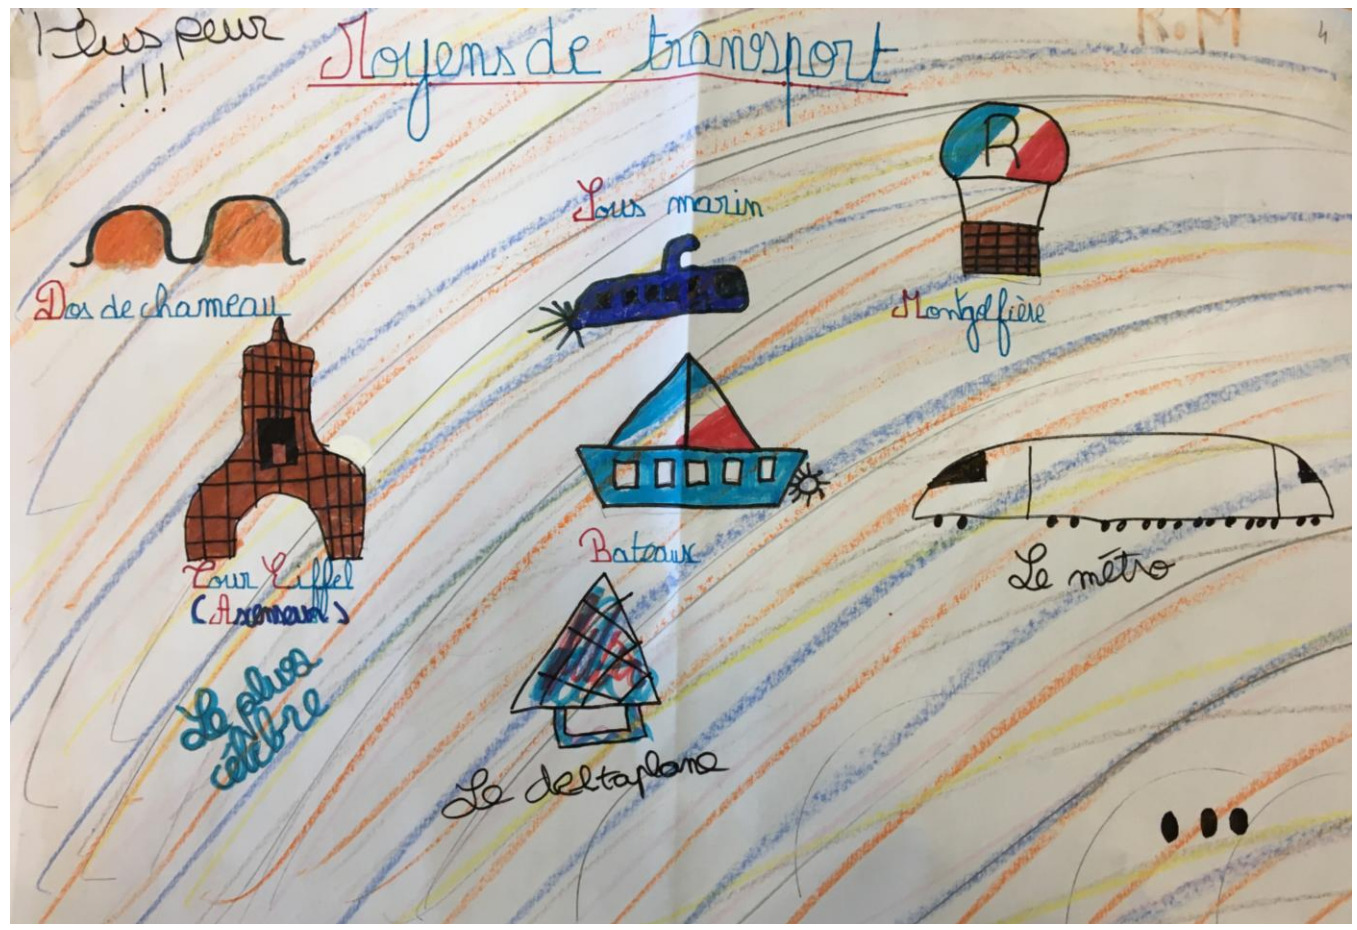 Plus peur
!!!
Moyens de transport
R.M
4
R
Sous marin
Dos de chameau
Montgolfière
Tour Eiffel
(Assenseur)
Bateaux
Le métro
La pluss
célèbre
Le deltaplane
...